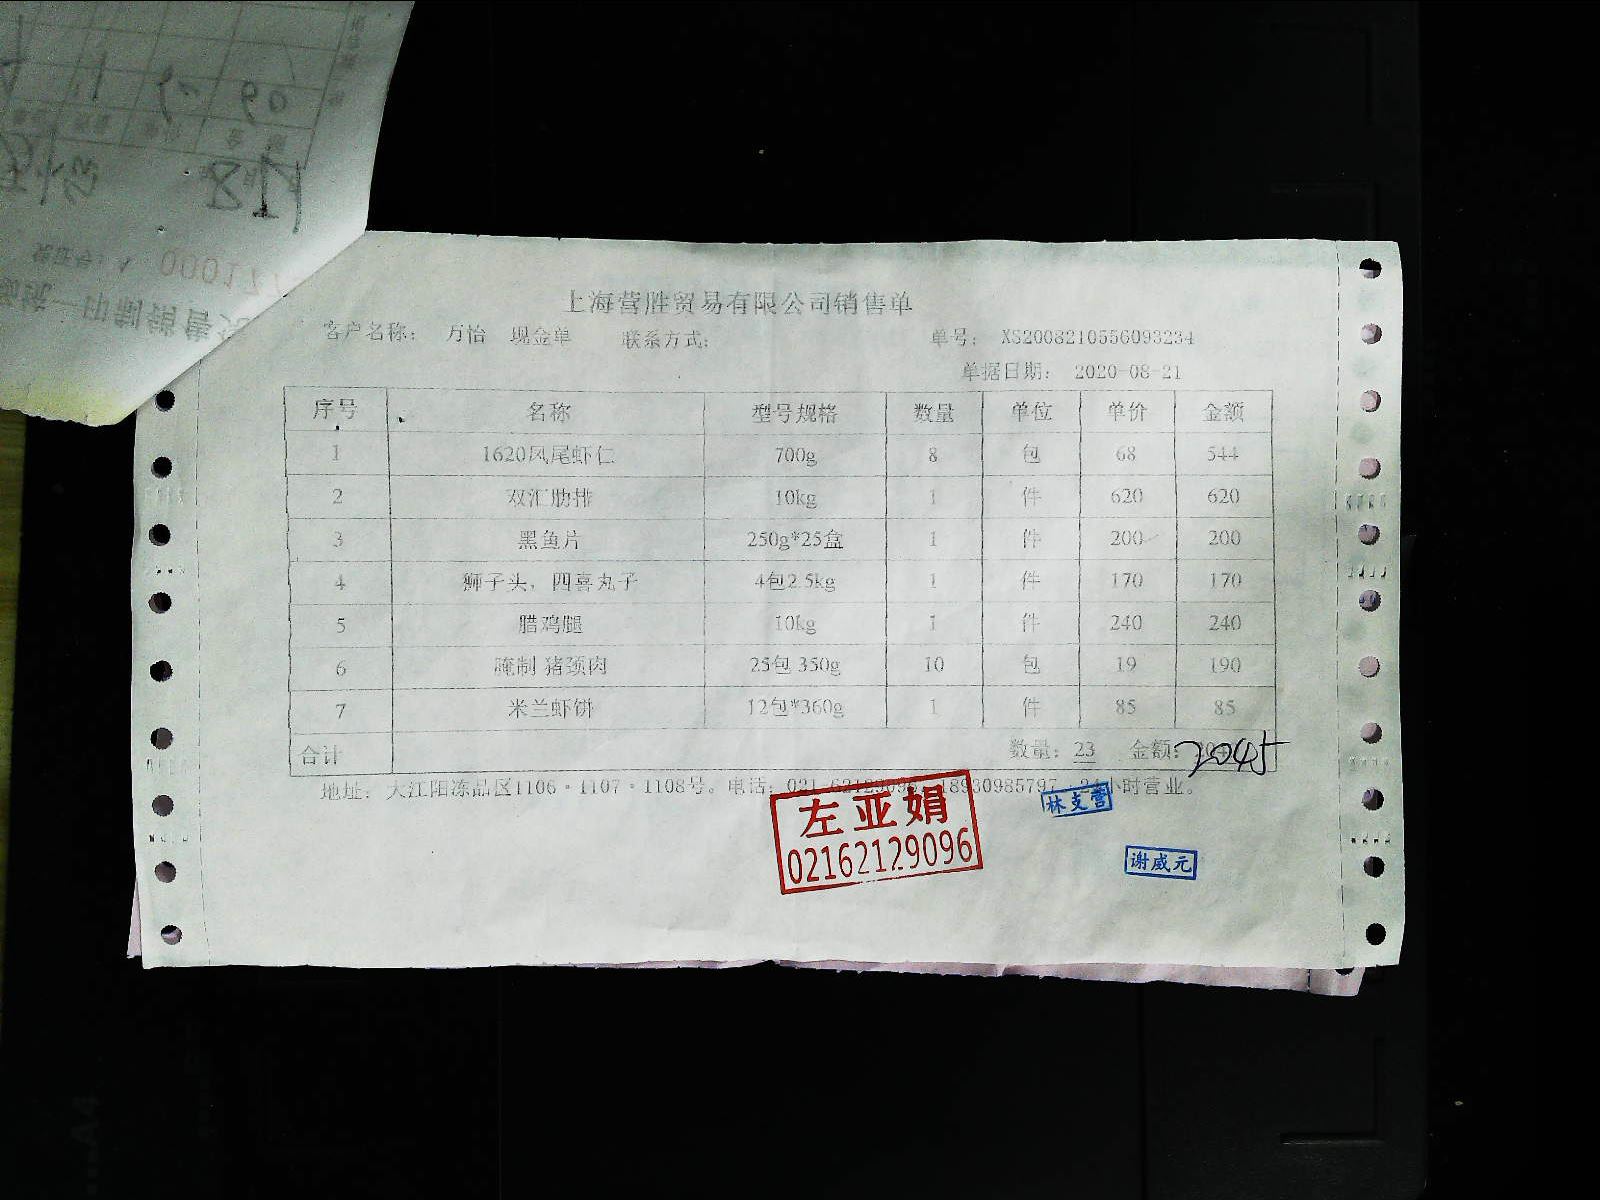 上海营胜贸易有限公司销售单
客户名称： 万怡 现金单 联系方式： 单号： XS2008210556093234
单据日期： 2020-08-21
序号 名称 型号规格 数量 单位 单价 金额
1 1620凤尾虾仁 700g 8 包 68 544
2 双汇肋排 10kg 1 件 620 620
3 黑鱼片 250g*25盒 1 件 200 200
4 狮子头，四喜丸子 4包2.5kg 1 件 170 170
5 腊鸡腿 10kg 1 件 240 240
6 腌制 猪颈肉 25包 350g 10 包 19 190
7 米兰虾饼 12包*360g 1 件 85 85
合计 数量：23 金额：2045
地址： 大江阳冻品区1106·1107·1108号。电话：021-62129096 18930985797 24小时营业。
左亚娟
02162129096
林支营
谢威元